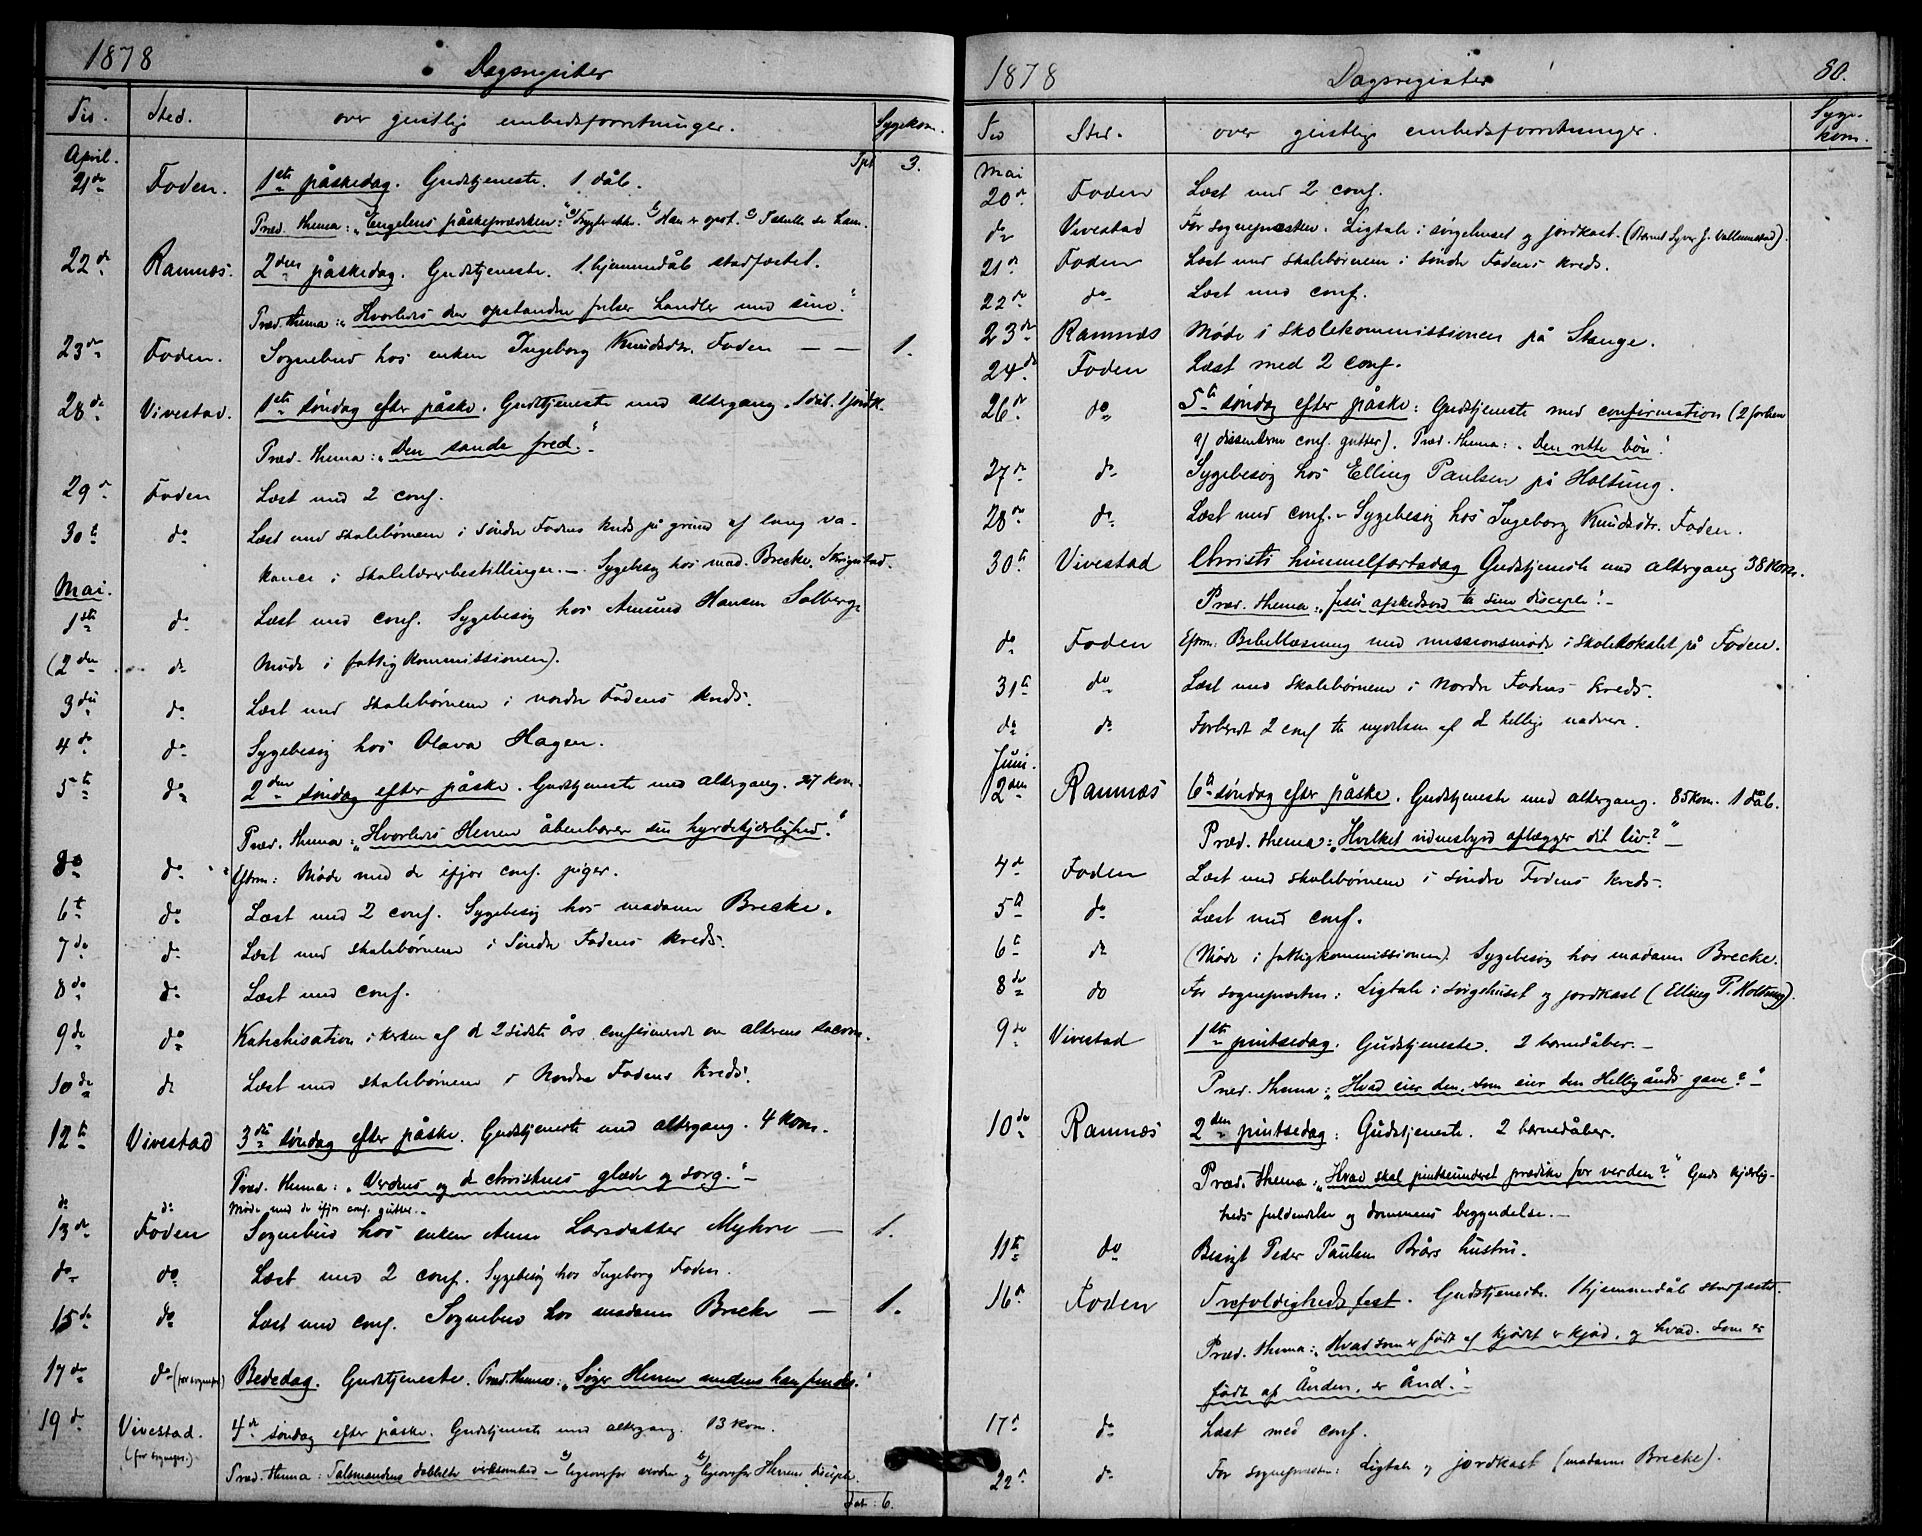 1878 Dagsregister
Tid. Sted. over geistlige embedsforretninger. Sygekom.
April. Tpt 3.
21de Foden. 1ste påskedag. Gudstjeneste. 1 dåb.
Præd. thema: "Engelens påskeprædiken:" a) Frygter ikke. b) Han er opst. c)
22de Ramnæs. 2den påskedag. Gudstjeneste. 1 hjemmedåb stadfæstet.
Præd. thema: "Hvorledes den opstandne frelser handler med sine."
23de Foden. Sognebud hos enken Ingeborg Knudsdtr. Foden — — 1.
28de Vivestad. 1ste søndag efter påske. Gudstjeneste med altergang. 1 dåb. 1 jordk.
Præd. thema: "Den sande fred."
29de Foden Læst med 2 conf.
30te do Læst med skolebørnene i søndre Fodens kreds på grund af lang va-
kance i skolelærerbestillingen. — Sygebesøg hos mad. Brecke,
Mai.
1ste do Læst med conf. Sygebesøg hos Amund Hansen Solberg
(2den do Møde i fattigkommissionen).
3die do Læst med skolebørnene i nordre Fodens kreds.
4de do Sygebesøg hos Olava Hagen.
5te do 2den søndag efter påske. Gudstjeneste med altergang. 27 kom.
Præd. thema: "Hvorledes Herren åbenbarer sin hyrdekjærlighed."
do do Efterm: Møde med de ifjor conf. piger.
6te do Læst med 2 conf. Sygebesøg hos madame Brecke.
7de do Læst med skolebørnene i Søndre Fodens kreds.
8de do Læst med conf.
9de do Katechisation i kirken af de 2 sidste års confirmerede om alterens sacram.
10de do Læst med skolebørnene i Nordre Fodens kreds.
12te Vivestad 3die søndag efter påske. Gudstjeneste med altergang. 4 kom.
Præd. thema: "Verdens og de christnes glæde og sorg." —
do do Møde med de ifjor conf. gutter. —
13de Foden Sognebud hos enken Anne Larsdatter Myhre — 1.
do do Læst med 2 conf. Sygebesøg hos Ingeborg Foden.
15de do Læst med conf. Sognebud hos madame Brecke — 1.
17de do (for sognepr.) Bededag. Gudstjeneste. Præd. thema: "Søger Herren medens han findes."
19de Vivestad. 4de søndag efter påske. Gudstjeneste med altergang. 13 kom.
(for sognepr.)
Præd. thema: Talsmandens dobbelte virksomhed — a) ligeoverfor verden og b) ligeoverfor Herrens disciple.
Lat: 6.
1878 Dagsregister 80.
Tid Sted. over geistlige embedsforretninger. Syge-
kom.
Mai
20de Foden Læst med 2 conf.
do Vivestad For sognepræsten. Ligtale i sørgehuset og jordkast. (
21de Foden Læst med skolebørnene i søndre Fodens kreds.
22de do Læst med conf.
23de Ramnæs Møde i skolekommissionen på Stange.
24de Foden Læst med 2 conf.
26de do 5te søndag efter påske: Gudstjeneste med confirmation (2
af dissenterne conf. gutter). Præd. thema: "Den rette bøn."
27de do Sygebesøg hos Elling Paulsen på Holtung.
28de do Læst med conf. – Sygebesøg hos Ingeborg Knudsdtr. Foden.
30te Vivestad Christi himmelfartsdag Gudstjeneste med altergang 38 kom.
Præd. thema: "Jesu afskedsord til sine disciple." —
do Foden Efterm: Bibellæsning med missionsmøde i skolelokalet på Foden.
31te do Læst med skolebørnene i Nordre Fodens kreds.
do do Forberedt 2 conf. til nydelsen af d. hellige nadvere.
Juni.
2den Ramnæs 6te søndag efter påske. Gudstjeneste med altergang. 85 kom. 1 dåb.
Præd. thema: "Hvilket vidnesbyrd aflægger dit liv?" —
4de Foden Læst med skolebørnene i søndre Fodens kreds.
5te do Læst med conf.
6te do (Møde i fattigkommissionen). Sygebesøg hos madame Brecke.
8de do For sognepræsten: Ligtale i sørgehuset og jordkast (Elling P. Holtung).
9de Vivestad 1ste pintsedag. Gudstjeneste. 2 barnedåber. —
Præd. thema: "Hvad eier den, som eier den Helligånds gave?" —
10de Ramnæs 2den pintsedag: Gudstjeneste. 2 barnedåber.
Præd. thema: "Hvad skal pintseunderet prædike for verden?" Guds kjærlig-
heds fuldendelse og dommens begyndelse. —
11te do Besøgt Peder Paulsen Brårs hustru.
16de Foden Trefoldigheds fest. Gudstjeneste. 1 hjemmedåb stadfæstet.
Præd. thema: "Hvad som er født af kjødet er kjød, og hvad som er
født af Ånden, er Ånd." —
17de do Læst med conf.
22de do For sognepræsten: Ligtale og jordkast (madame Brecke).